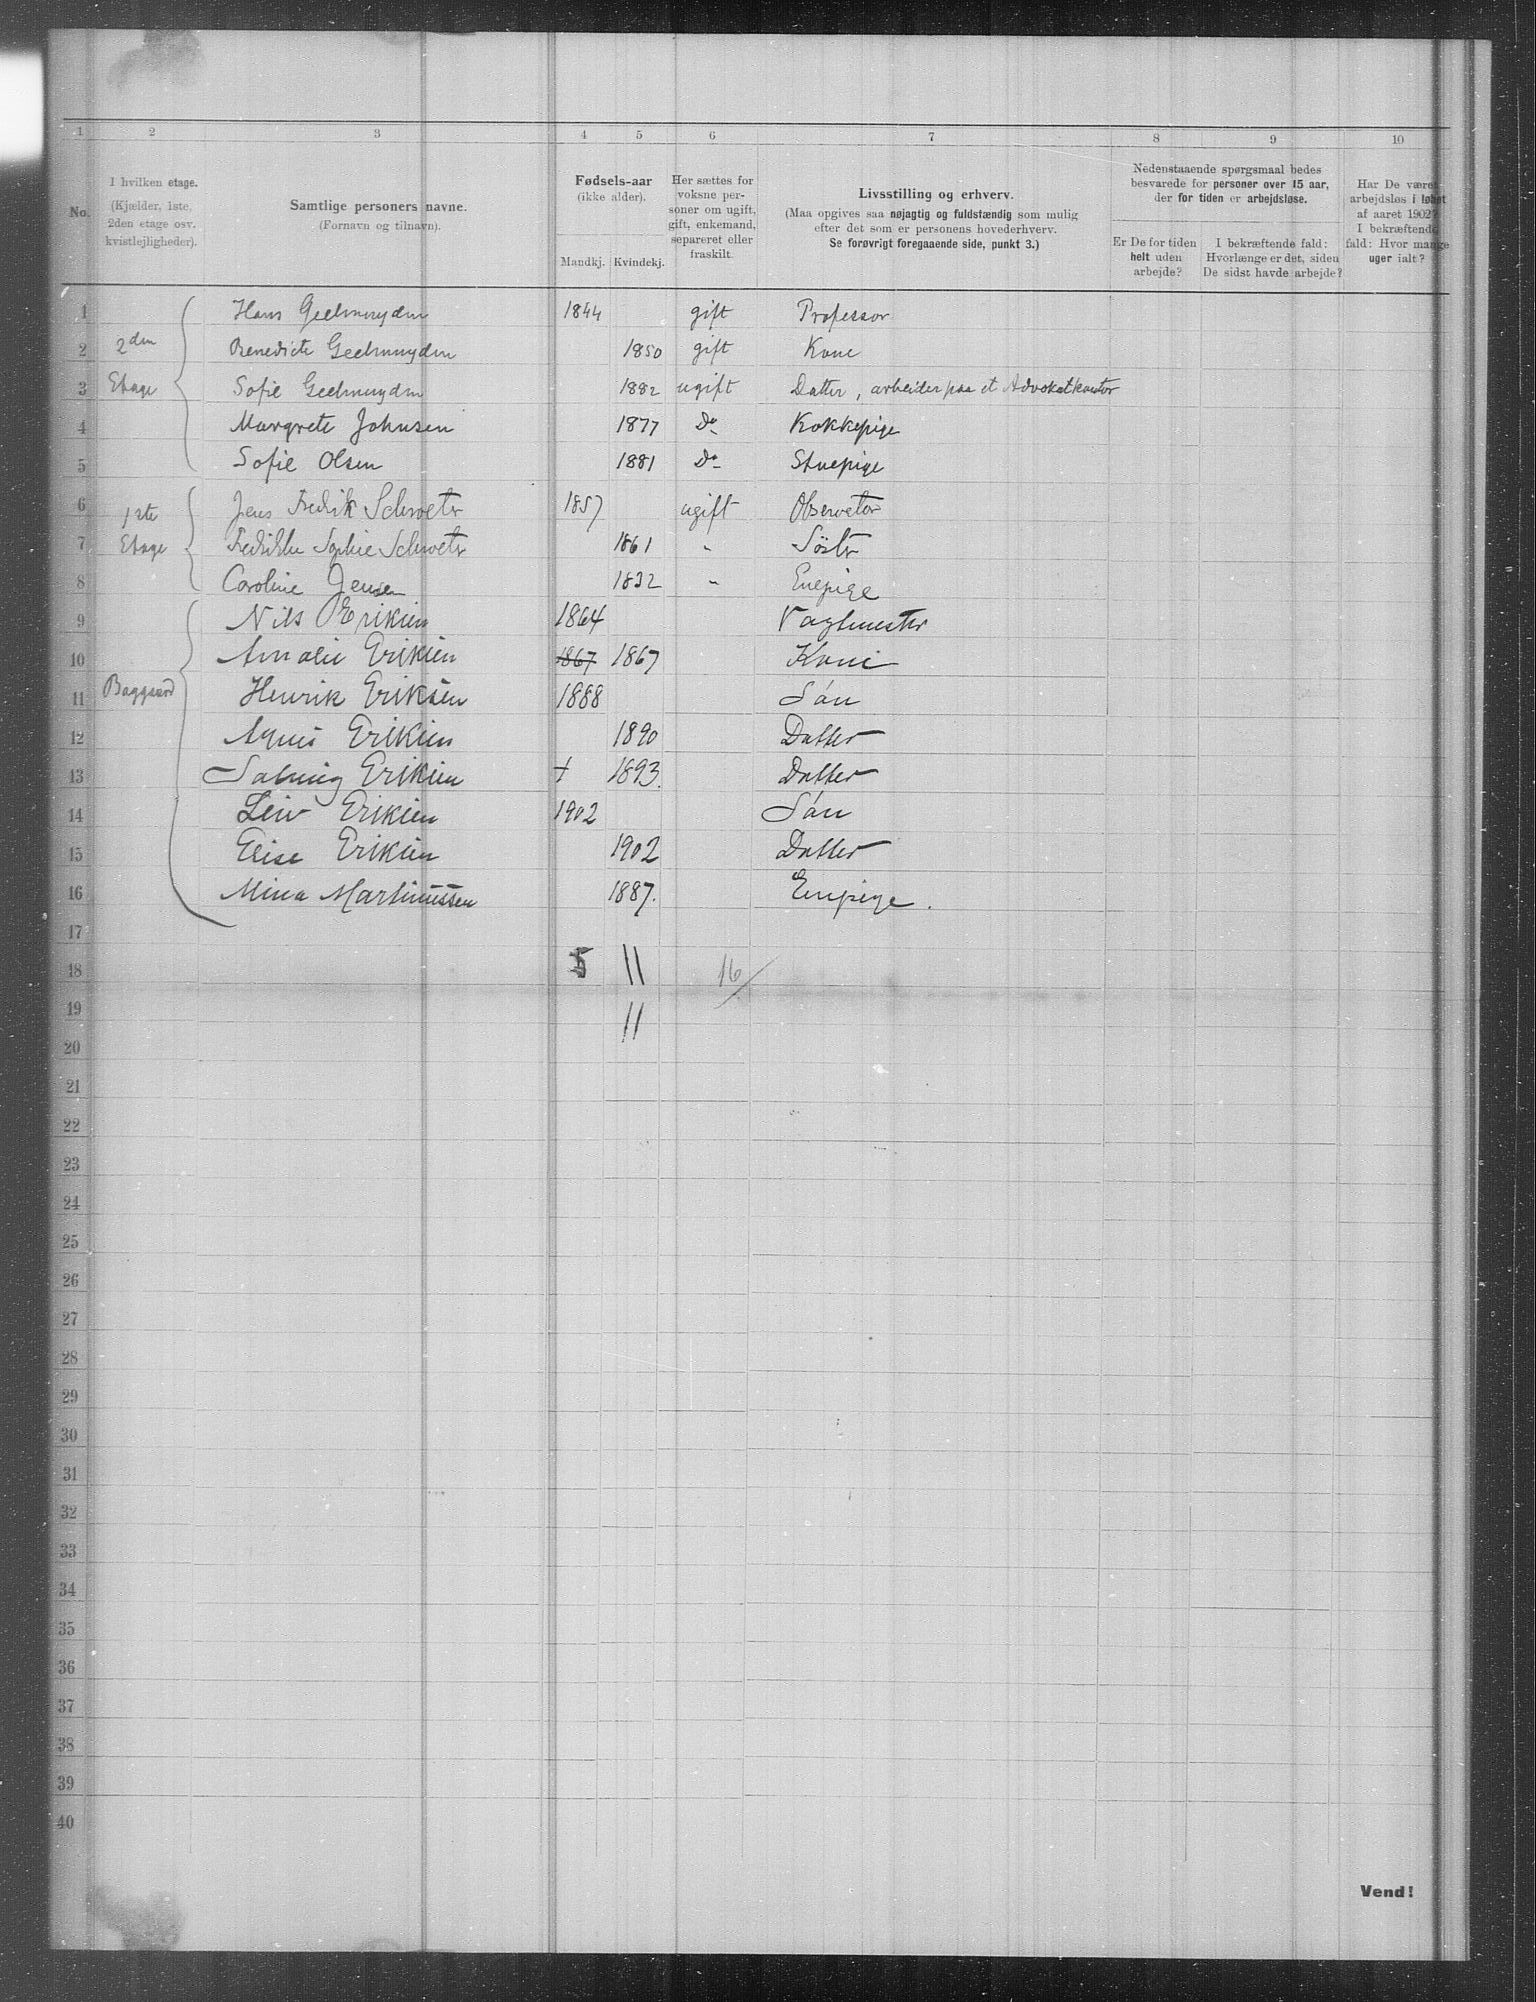 1 2 3 4 5 6 7 8 9 10
No.
I hvilken etage.
(Kjælder, 1ste,
2den etage osv.
kvistlejligheder).
Samtlige personers navne.
(Fornavn og tilnavn).
Fødsels-aar
(ikke alder).
Mandkj. Kvindekj.
Her sættes for
voksne per-
soner om ugift,
gift, enkemand,
separeret eller
fraskilt.
Livsstilling og erhverv.
(Maa opgives saa nøjagtig og fuldstændig som mulig
efter det som er personens hovederhverv.
Se forøvrigt foregaaende side, punkt 3.)
Nedenstaaende spørgsmaal bedes
besvarede for personer over 15 aar,
der for tiden er arbejdsløse.
Er De for tiden
helt uden
arbejde?
I bekræftende fald:
Hvorlænge er det, siden
De sidst havde arbejde?
Har De været
arbejdsløs i løbet
af aaret 1902?
I bekræftende
fald: Hvor mange
uger ialt?
1 Hans Geelmuyden 1844 gift Professor
2 2den Benedicte Geelmuyden 1850 gift Kone
3 Etage Sofie Geelmuyden 1882 ugift Datter, arbeider paa et Advokatkontor
4 Margrete Johnsen 1877 Do Kokkepige
5 Sofie Olsen 1881 Do Stuepige
6 1ste Jens Fredrik Schroeter 1857 ugift Observator
7 Etage Fredrikke Sophie Schroeter 1861 " Søster
8 Caroline Jensen 1832 " Enepige
9 Nils Eriksen 1864 Vagtmester
10 Amalie Eriksen 1867 1867 Kone
11 Baggaard Henrik Eriksen 1888 Sön
12 Agnes Eriksen 1890 Datter
13 Solveig Eriksen + 1893. Datter
14 Leiv Eriksen 1902 Sön
15 Elise Eriksen 1902 Datter
16 Mina Martinussen 1887. Enepige.
17
18 5 11 16/
19 11
20
21
22
23
24
25
26
27
28
29
30
31
32
33
34
35
36
37
38
39
40
Vend!